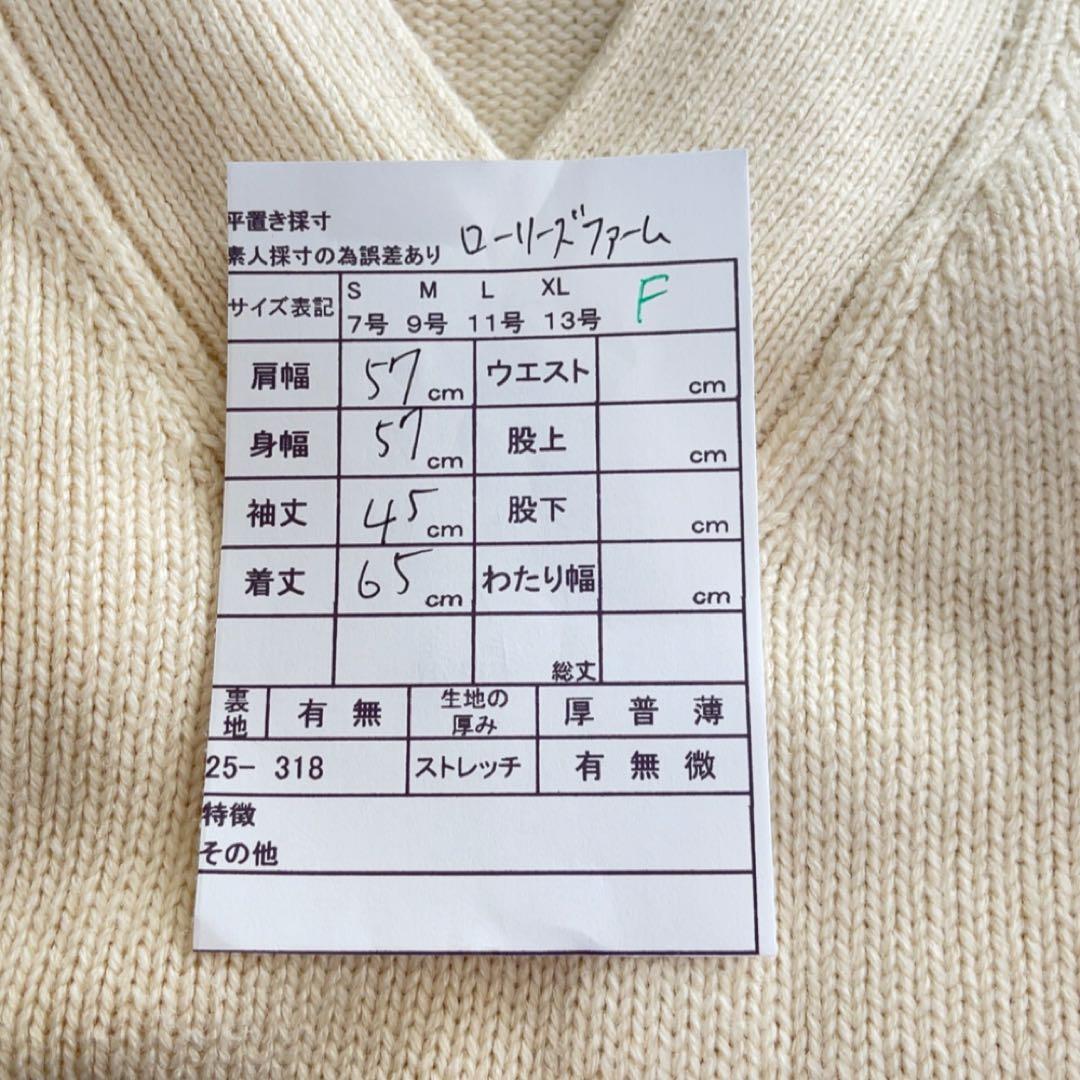 平置き採寸
素人採寸の為誤差あり ローリーズファーム
サイズ表記 S M L XL F
7号 9号 11号 13号
肩幅 57cm ウエスト cm
身幅 57cm 股上 cm
袖丈 45cm 股下 cm
着丈 65cm わたり幅 cm
総丈
裏地 有 無 生地の厚み 厚 普 薄
25- 318 ストレッチ 有 無 微
特徴
その他